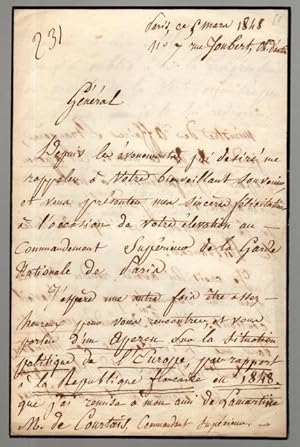 231
Paris, ce 8 mars 1848
No 7 rue Joubert, Ch. d'antin
Général
Depuis les évènements, j'ai desiré me
rappeler à votre bienveillant souvenir
et vous présenter mes sincères félicitations
à l'occasion de votre élévation au
Commandement Supérieur de la Garde
Nationale de Paris
J'espère une autre fois être assez
heureux pour vous rencontrer, et vous
parler d'un Aperçu sur la Situation
politique de l'Europe, par rapport
à la République française en 1848,
que j'ai remise à mon ami de Lamartine
M. de Courtais, Commandant Supérieur.